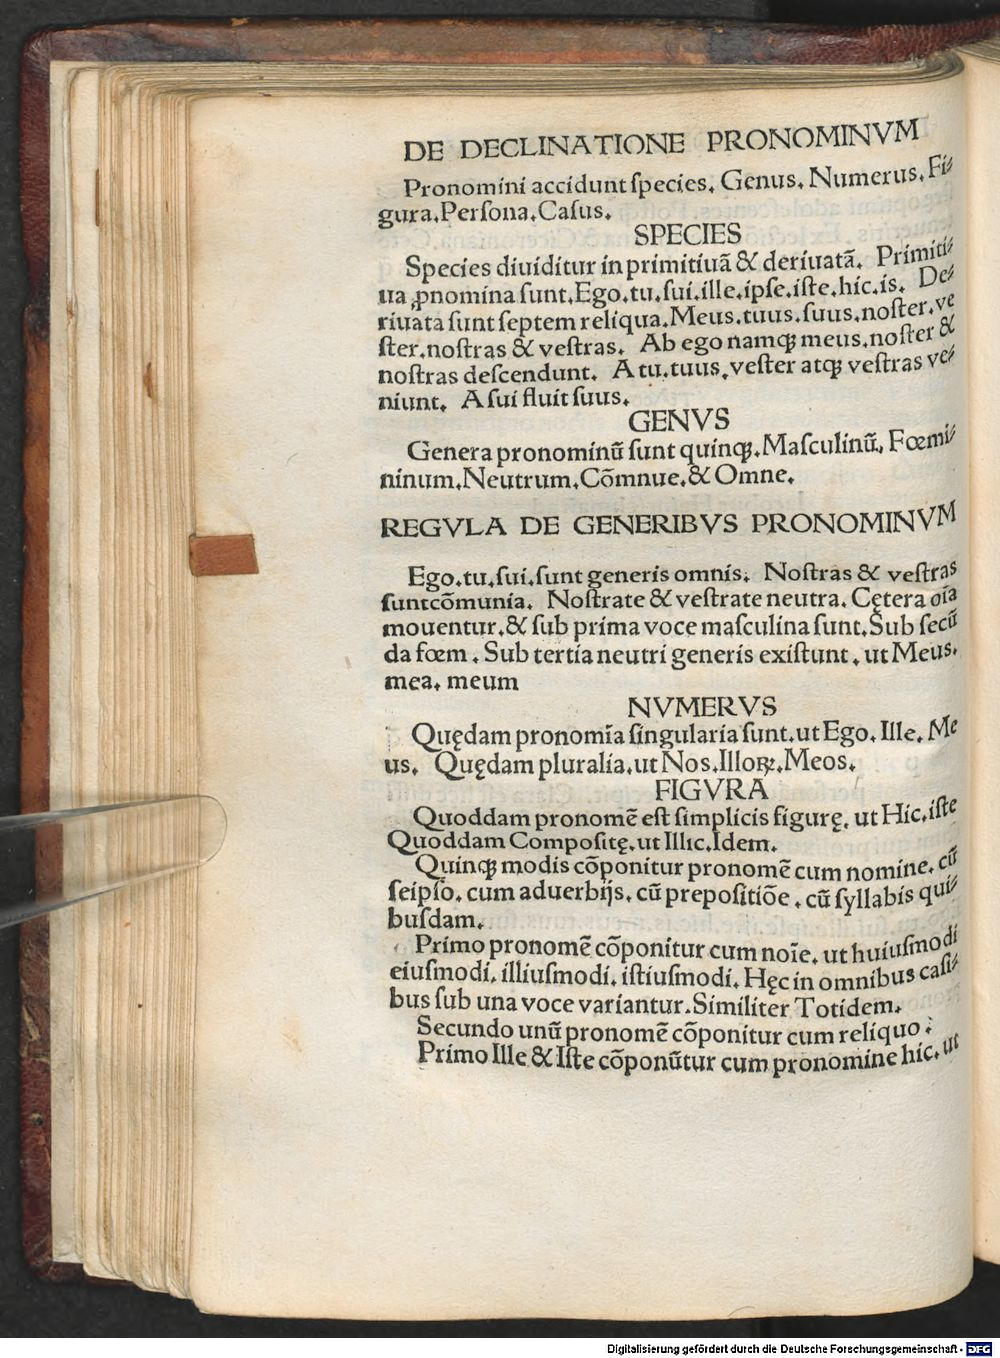 DE DECLINATIONE PRONOMINVM
Pronomini accidunt ſpecies. Genus. Numerus. Fi⸗
gura. Perſona. Caſus.
SPECIES
Species diuiditur in primitiuã & deriuatã. Primiti⸗
ua ꝓnomina ſunt. Ego. tu. ſui. ille. ipſe. iſte. hic. is. De⸗
riuata ſunt ſeptem reliqua. Meus. tuus. ſuus. noſter. ve
ſter. noſtras & veſtras. Ab ego namqꝫ meus. noſter &
noſtras deſcendunt. A tu. tuus. veſter atqꝫ veſtras ve⸗
niunt. A ſui fluit ſuus.
GENVS
Genera pronominũ ſunt quinqꝫ. Maſculinũ. Fœmi⸗
ninum. Neutrum. Cõmnue. & Omne.
REGVLA DE GENERIBVS PRONOMINVM
Ego. tu. ſui. ſunt generis omnis. Noſtras & veſtras
ſuntcõmunia. Noſtrate & veſtrate neutra. Cętera oĩa
mouentur. & ſub prima voce maſculina ſunt. Sub ſecũ
da fœm. Sub tertia neutri generis exiſtunt. ut Meus.
mea. meum
NVMERVS
Quędam pronomĩa ſingularia ſunt. ut Ego. Ille. Me
us. Quędam pluralia. ut Nos. Illoꝝ. Meos.
FIGVRA
Quoddam pronomẽ eſt ſimplicis figurę. ut Hic. iſte
Quoddam Compoſitę. ut Illic. Idem.
Quinqꝫ modis cõponitur pronomẽ cum nomine. cũ
ſeipſo. cum aduerbijs. cũ prepoſitiõe. cũ ſyllabis qui⸗
buſdam.
Primo pronomẽ cõponitur cum noĩe. ut huiuſmodi
eiuſmodi. illiuſmodi. iſtiuſmodi. Hęc in omnibus caſi⸗
bus ſub una voce variantur. Similiter Totidem.
Secundo unũ pronomẽ cõponitur cum reliquo:
Primo Ille & Iſte cõponũtur cum pronomine hic. ut
Digitalisierung gefördert durch die Deutsche Forschungsgemeinschaft - DFG